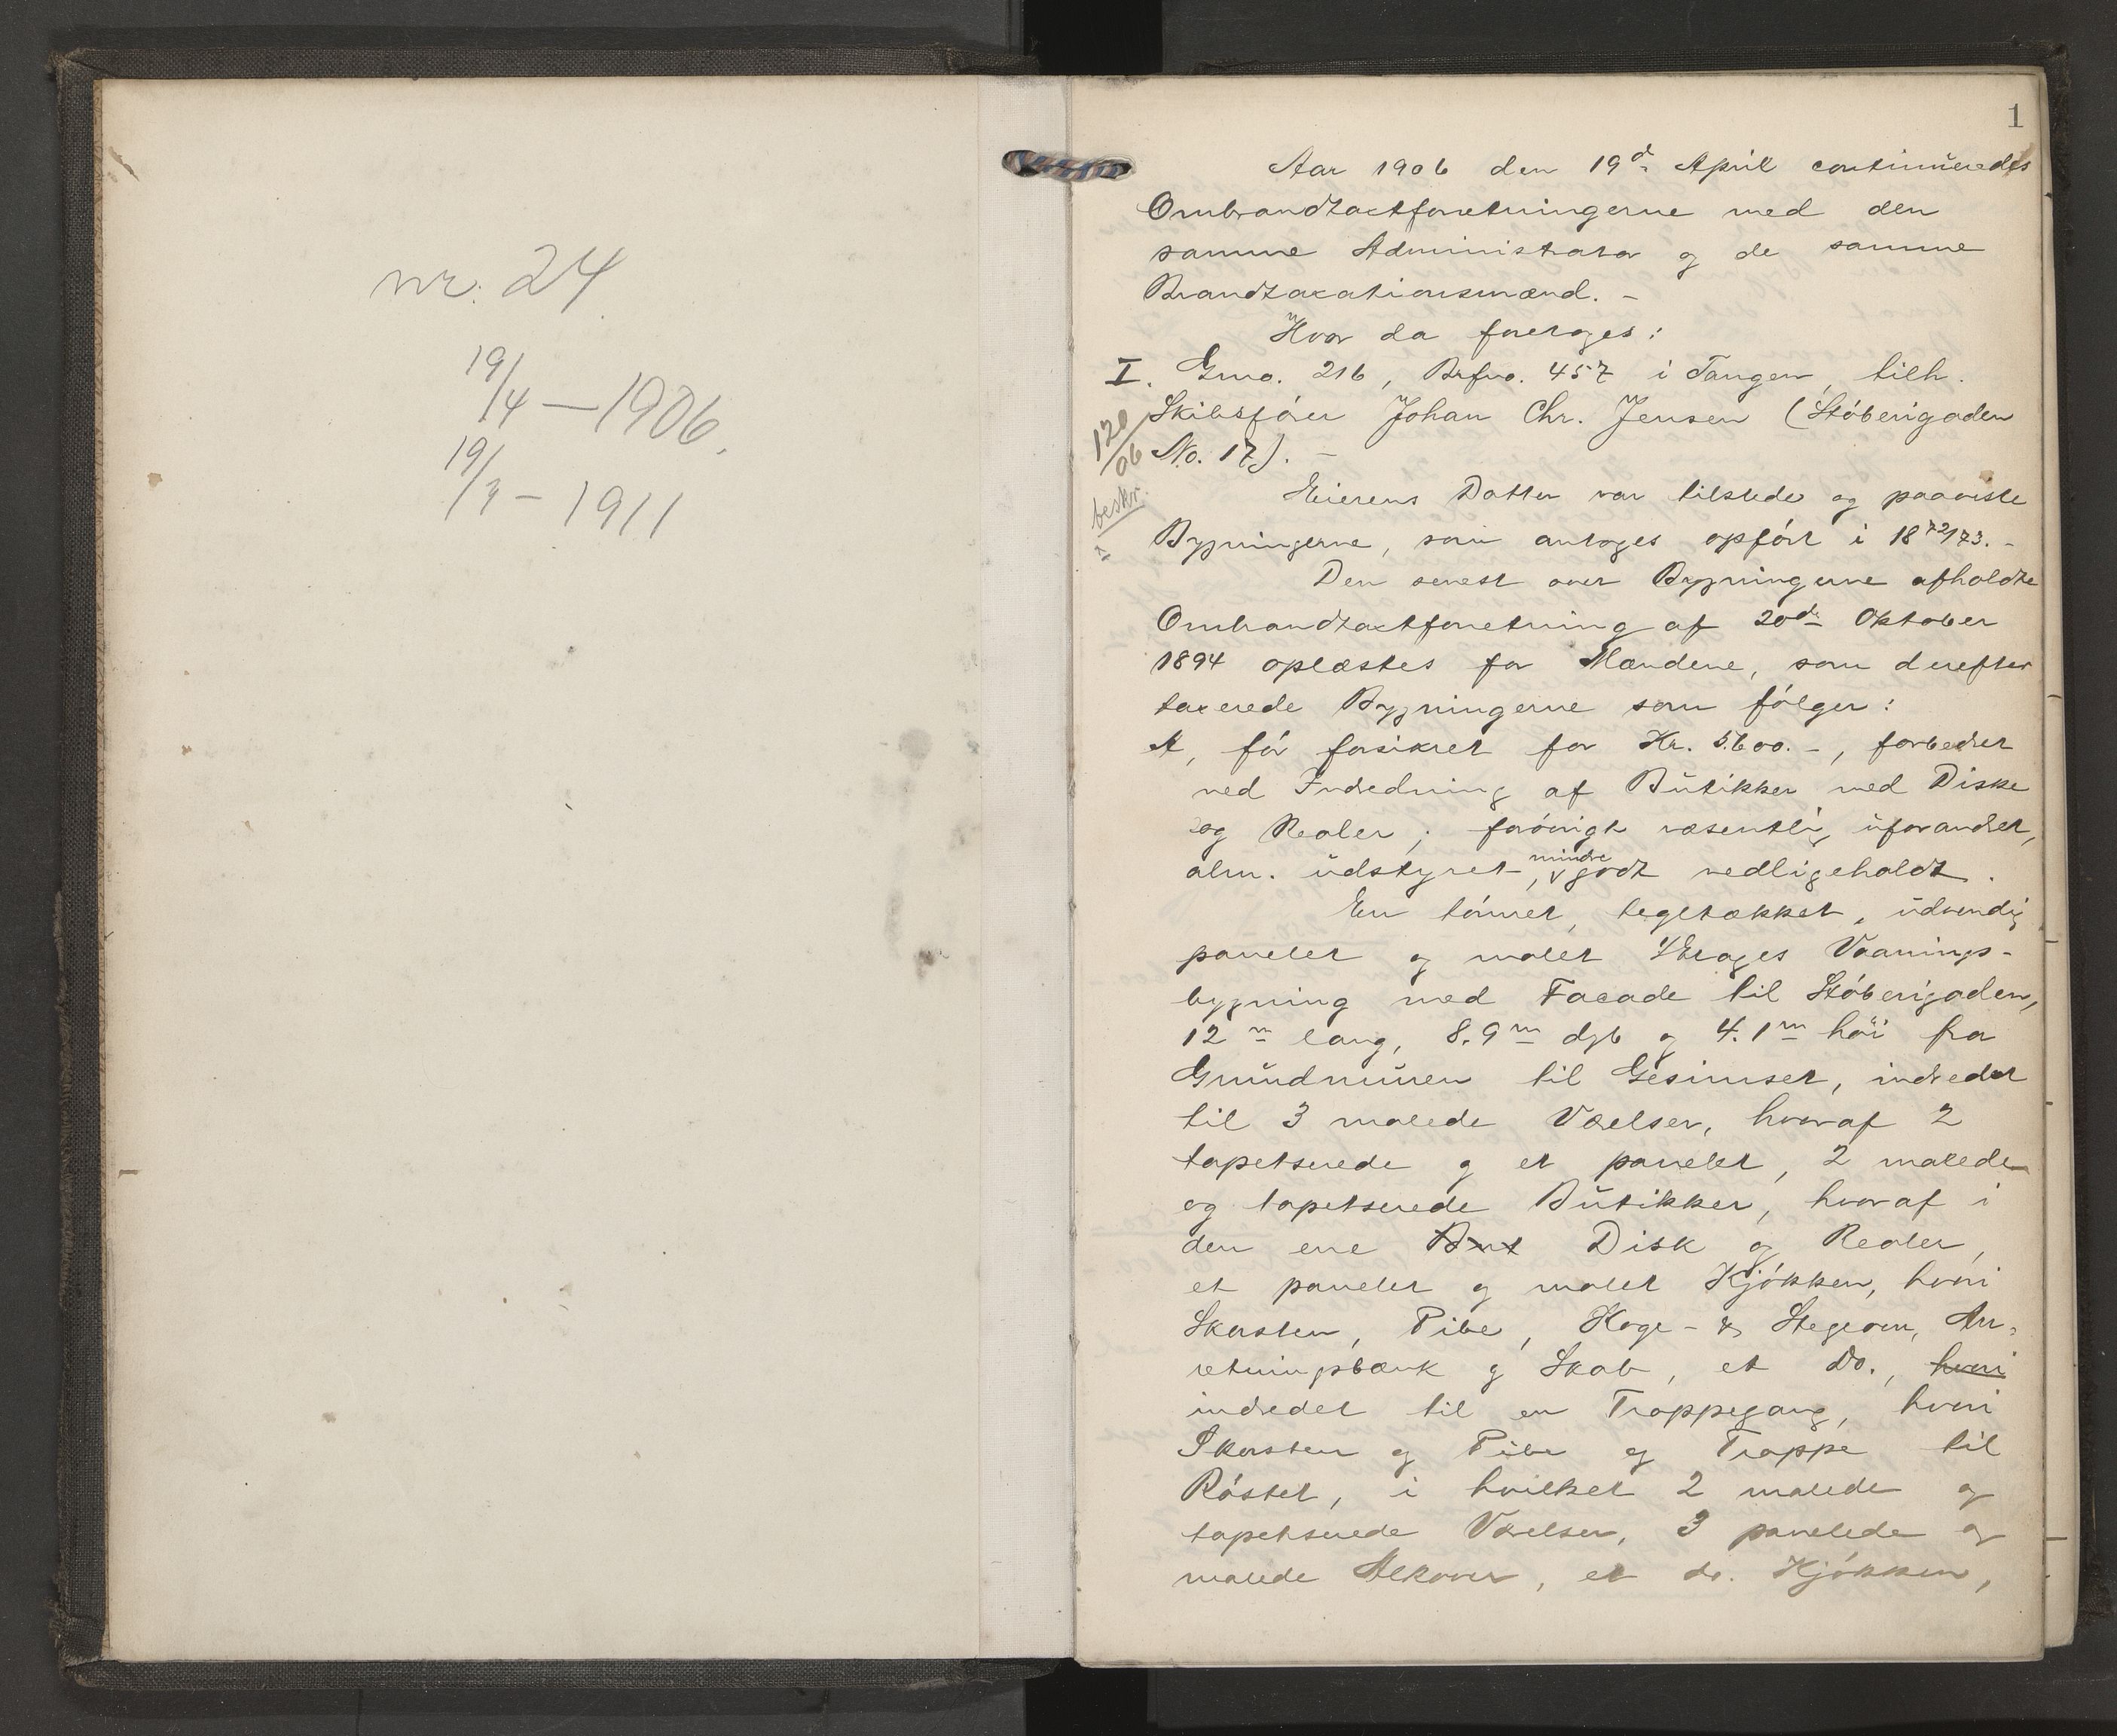 nr. 24
19/4 – 1906.
19/3 – 1911
1
Aar 1906 den 19d. April continueredes
Ombrandtaxtforretningerne med den
samme Administrator og de samme
Brandtaxationsmænd. –
Hvor da foretoges:
I. Gno. 216, Brfno. 457 i Tangen, tilh.
Skibsfórer Johan Chr. Jensen (Stóberigaden
No. 17). –
120/06
beskr.
Eierens Datter var tilstede og paaviste
Bygningerne, som antoges opfórt i 1872/73. –
Den senest over Bygningerne afholdte
Ombrandtaxtforretning af 20de Oktober
1894 oplæstes for Mændene, som derefter
taxerede Bygningerne som fólger:
A, fór forsikret for Kr. 5.600. –, forbedret
ved Indredning af Butikker med Diske
og Reoler; forövrigt væsentlig uforandret,
alm. udstyret, mindre godt vedligeholdt.
En tómret, tegltækket, udvendig
panelet og malet 1 Etages Vaanings-
bygning med Facade til Stóberigaden,
12 m lang, 8.9 m dyb og 4.1 m höi fra
Grundmuren til Gesimset, indredet
til 3 malede Værelser, hvoraf 2
tapetserede og et panelet, 2 malede
og tapetserede Butikker, hvoraf i
den ene But Disk og Reoler,
et panelet og malet Kjókken, hvori
Skorsten, Pibe, Koge- & Stegeovn, An-
retningsbænk og Skab, et do., hvori
indredet til en Trappegang, hvori
Skorsten og Pibe og Trappe til
Róstet, i hvilket 2 malede og
tapetserede Værelser, 3 panelede og
malede Alkover, et do. Kjókken,